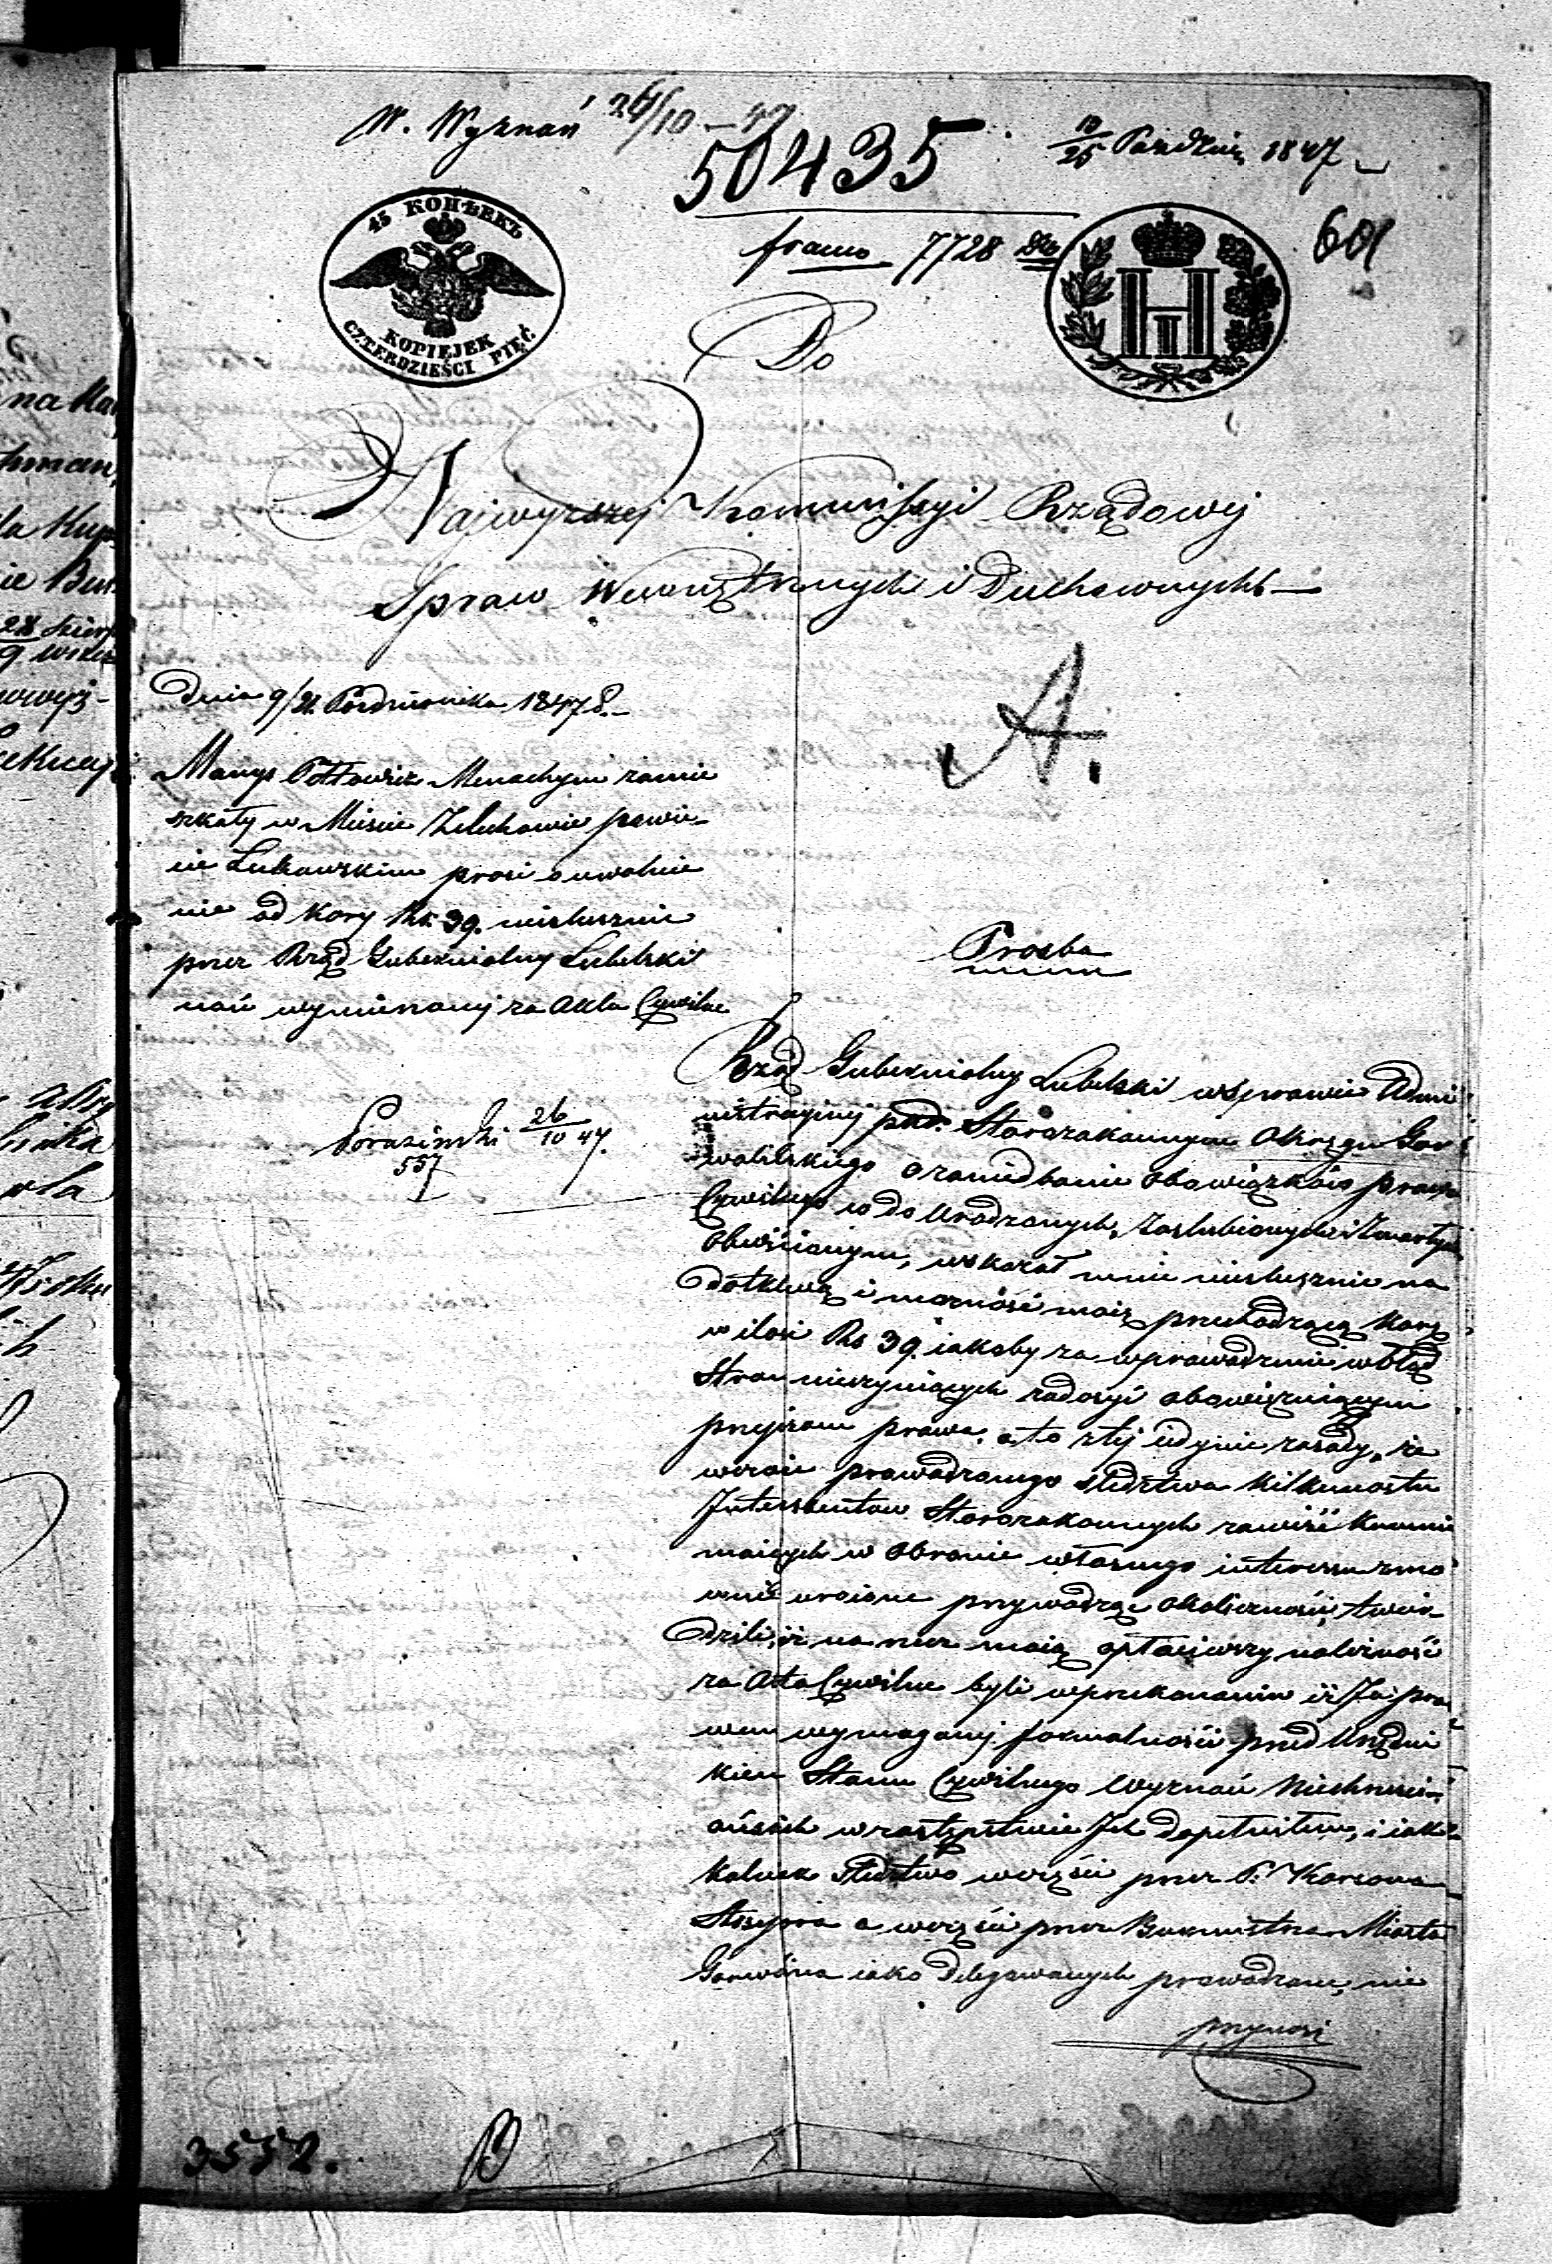 W. Wyznań 26/10 – 47
50435
13/25 Paździer. 1847
franco 7728
601
45 КОПѢЕКЪ
KOPIEJEK
CZTERDZIEŚCI PIĘĆ
Do
Najwyższej Kommissyi Rządowej
Spraw Wewnętrznych i Duchownych
A.
Dnia 9/21 Października 1847 R.
Manys Menachym zamie
szkały w Mieście Żelechowie powie-
cie Łukowskim prosi o uwolnie
nie od kary Rs. 39. niesłusznie
przez Rząd Gubernialny Lubelski
nań wymierzonej za Akta Cywilne
Prozba
Porazinski 26/10 47.
557
Rząd Gubernialny Lubelski w sprawie Admi
nistracyjnej Starozakonnym Okręgu Gar
wolińskiego o zaniedbanie obowiązków prawa
Cywilnego co do Urodzonych, Zaślubionych i Zmarłych
obwinionym, wskazał mnie niesłusznie na
dotkliwą i możność moią przechodzącą karę
w ilości Rs 39. iakoby za wprowadzenie w błąd
Stron nieczyniących zadosyć obowięzuiącym
przepisom prawa, a to z tej iedynie zasady, że
w czasie prowadzonego śledztwa kilkunastu
Interesentów Starozakonnych zawiść ku mnie
maiących w obronie własnego interesu zmo
wnie uroione przywodząc okoliczności, twier
dzili, iż na ręce moie opłaciwszy należność
za Akta Cywilne byli w przekonaniu iż Ja pra
wem wymaganej formalności przed Urzędni
kiem Stanu Cywilnego Wyznań Niechrześci-
ańskich w zastępstwie Ich dopełniłem, i iak-
kolwiek śledztwo w części przez P.
a w części przez Burmistrza Miasta
Garwolina iako Delegowanych prowadzone, nie
przynosi
3552.